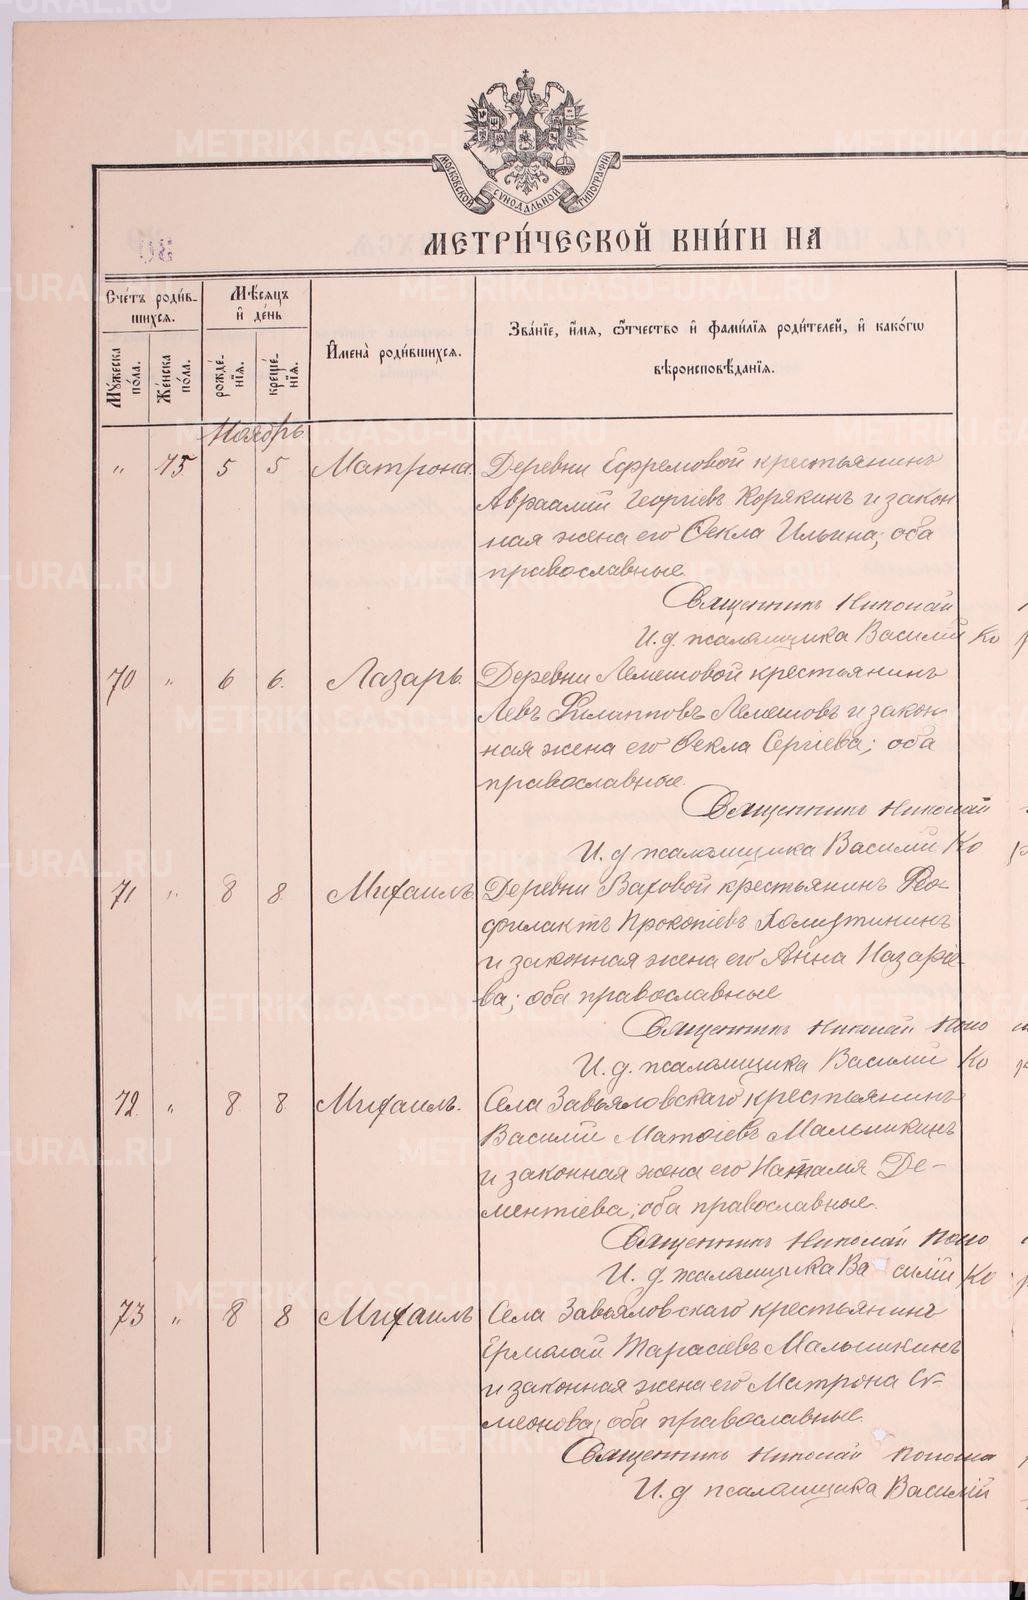 METRIKI.GASO-URAL.RU
МОСКОВСКОЙ СѴНОДАЛЬНОЙ ТИПОГРАФІИ
МЕТРИ́ЧЕСКОЙ КНИ́ГИ НА
Сче́тъ роди́в-
шихся.
Мѣ́сяцъ
и҆ де́нь
И҆мена̀ роди́вшихся.
Зва́нїе, и҆́мя, ѻ҆́тчество и҆ фами́лїя роди́телей, и҆ како́гѡ
вѣроисповѣ́данїя.
Мꙋ́жеска
по́ла.
Же́нска
по́ла.
рожде́-
нїя.
креще́-
нїя.
Ноябрь
" 75 5 5 Матрона. Деревни Ефремовой крестьянинъ
Авраамій Георгіевъ Корякинъ и закон
ная жена его Ѳекла Ильина; оба
православные.
Священникъ Николай
И. д. псаломщика Василій Ко
70 " 6 6. Лазарь. Деревни Лемешовой крестьянинъ
Левъ Филипповъ Лемешовъ и закон-
ная жена его Ѳекла Сергіева; оба
православные.
Священникъ Николай
И. д псаломщика Василій Ко
71 " 8 8 Михаилъ. Деревни Ваховой крестьянинъ Ѳео-
филактъ Прокопіевъ
и законная жена его Анна Назаріе-
ва; оба православные
Священникъ Николай Поно
И. д. псаломщика Василій Ко
72 " 8 8 Михаилъ. Села Завьяловскаго крестьянинъ
Василій Матѳіевъ Мальшикинъ
и законная жена его Наталія Де-
ментіева; оба православные.
Священникъ Николай Поно
И. д. псаломщика Василій Ко
73 " 8 8 Михаилъ Села Завьяловскаго крестьянинъ
Ермолай Тарасіевъ Мальшикинъ
и законная жена его Матрона Си-
меонова; оба православные.
Священникъ Николай Понома
И. д псаломщика Василій